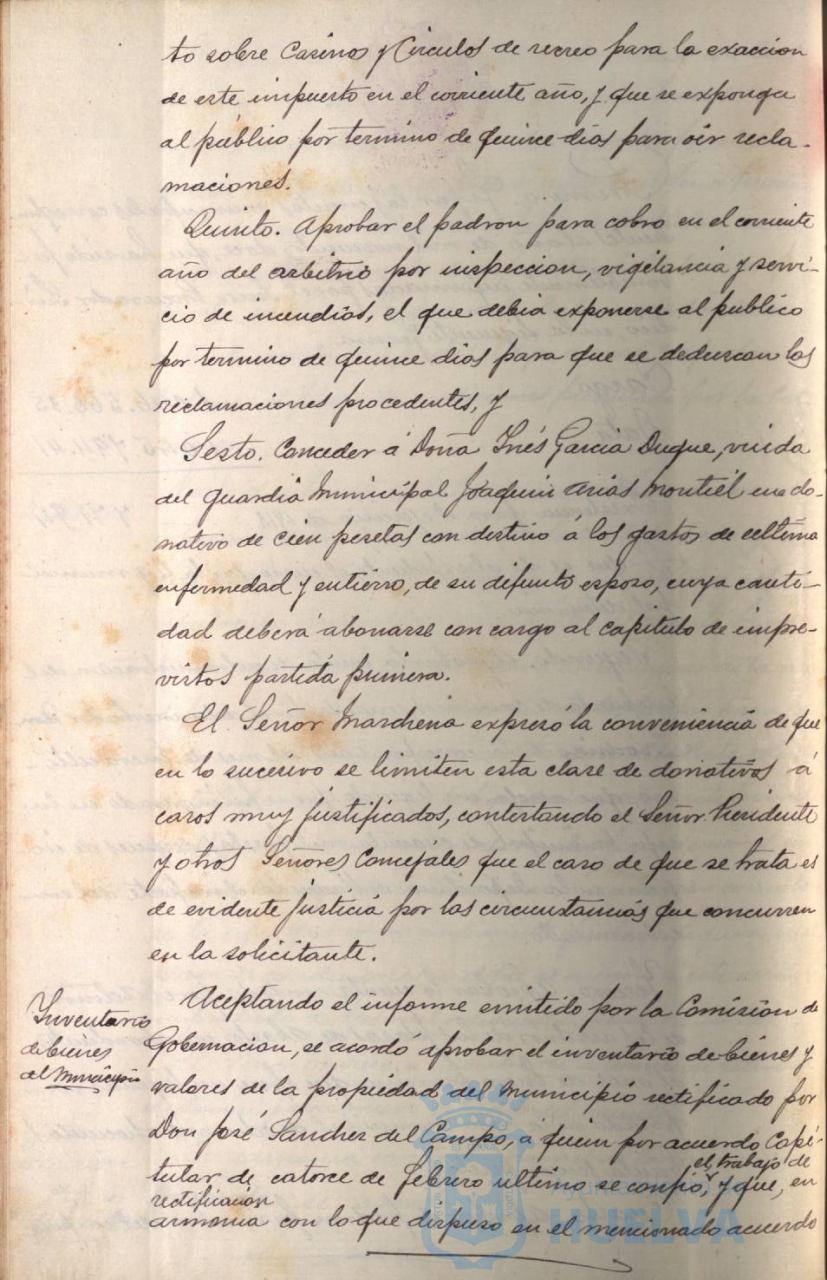 to sobre Casinos y Circulos de recreo para la exaccion
de este impuesto en el corriente año, y que se exponga
al público por termino de quince dias para oir recla-
maciones.
Quinto. Aprobar el padron para cobro en el corriente
año del arbitrio por inspeccion, vigilancia y servi-
cio de incendios, el que debia exponerse al publico
por termino de quince dias para que se deduzcan las
reclamaciones procedentes, y
Sesto. Conceder á Doña Inés Garcia Duque, viuda
del guardia Municipal Joaquin Arias Montiel un do-
nativo de cien pesetas con destino á los gastos de ultima
enfermedad y entierro, de su difunto esposo, cuya canti-
dad deberá abonarse con cargo al capitulo de impre-
vistos partida primera.
El Señor Marchena expresó la conveniencia de que
en lo sucesivo se limiten esta clase de donativos á
casos muy justificados, contestando el Señor Presidente
y otros Señores Concejales que el caso de que se trata es
de evidente justicia por las circunstancias que concurren
en la solicitante.
Inventario
de bienes
del Municipio
Aceptando el informe emitido por la Comision de
Gobernacion, se acordó aprobar el inventario de bienes y
valores de la propiedad del Municipio rectificado por
Don José Sanchez del Campo, á quien por acuerdo Capi-
tular de catorce de febrero ultimo se confió el trabajo de
rectificacion, y que, en
armonia con lo que dispuso en el mencionado acuerdo
HUELVA